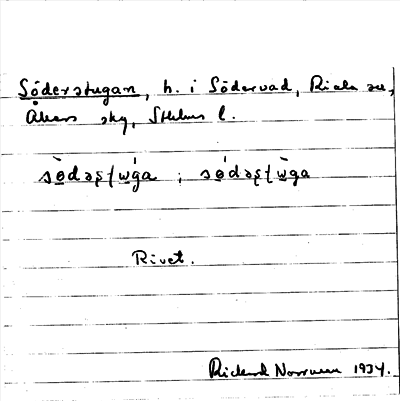 Söderstugan, h. i Södervad, Riala sn,
Åkers skg, Sthlms l.
sö̀dəʂʈɯga ; sö́dəʂʈɯ̀ga
Rivet.
Rickard Norrman 1934.